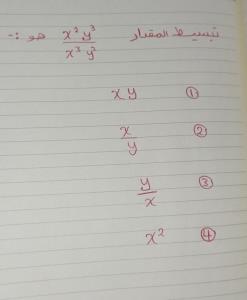 تبسيط المقدار x²y³ / x³y² هو :-
① xy
② x/y
③ y/x
④ x²